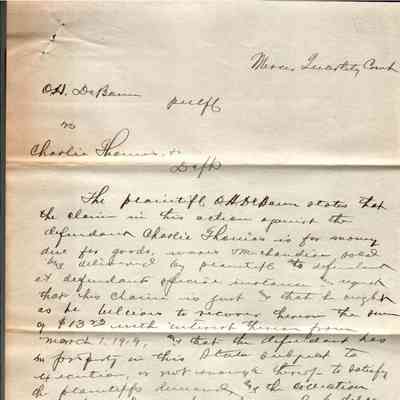 Mercer Quarterly Court
O.H. DeBaun
Pltff
vs
Charlie Thomas,
Defts
The plaintiff O.H. DeBaun states that
the claim in this action against the
defendant Charlie Thomas is for money
due for goods, wares & merchandise sold
& delivered by plaintiff to defendant
at defendants special instance & request
that his claim is just & that he ought
as he believes to recover thereon the sum
of $13 with interest thereon from
March 1, 1914, & that the defendant has
no property in this State subject to
execution, or not enough thereof to satisfy
the plaintiffs demand, & the collection